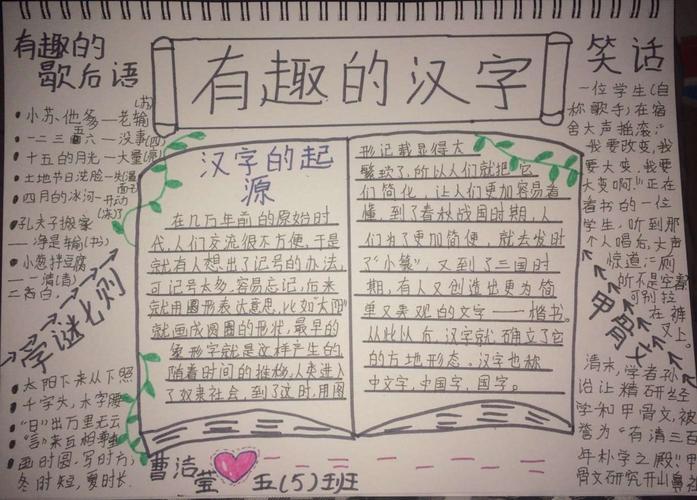 有趣的汉字
有趣的
歇后语
小苏、他爹—老输(苏)
一二三五六—没事(四)
十五的月光—大量(亮)
土地节日洗脸—失(湿)
面子
四月的冰河—开动
(冻)了
孔夫子搬家
——净是输(书)
小葱拌豆腐
——一清(青)
二香白.
字谜七则
太阳下来从下照
千字头,木字腰
“日”出万里无云
“言”来互相尊
画时圆,写时方,
冬时短,夏时长.
汉字的起
源
在几万年前的原始时
代,人们交流很不方便,于是
就有人想出了记号的办法,
可记号太多,容易忘记,后来
就用图形表达意思,比如“太阳”
就画成圆圈的形状,最早的
象形字就是这样产生的
随着时间的推移,人类进入
了奴隶社会,到了这时,用图
形记载显得太
繁琐了,所以人们就把它
们简化,让人们更加容易看
懂,到了春秋战国时期,人
们为了更加简便,就去发时
了“小篆”,又到了三国时
期,有人又创造出更为简
单又美观的文字——楷书.
从此以后,汉字就确立了它
的方地形态。汉字也称
中文字,中国字,国字。
曹洁莹
五(5)班班
笑话
一位学生(自
称歌手)在宿
舍大声摇滚:
“我要改变,我
要大变,我要
大变啊!”正在
看书的一位
学生,听到那
个人唱后,大声
惊道:“厕
所不是空着
可别拉
在裤
叉上。
甲骨文
清末,学者孙
诒让精研经
学和甲骨文,被
誉为“有清三百
年朴学之殿”.甲
骨文研究开山鼻